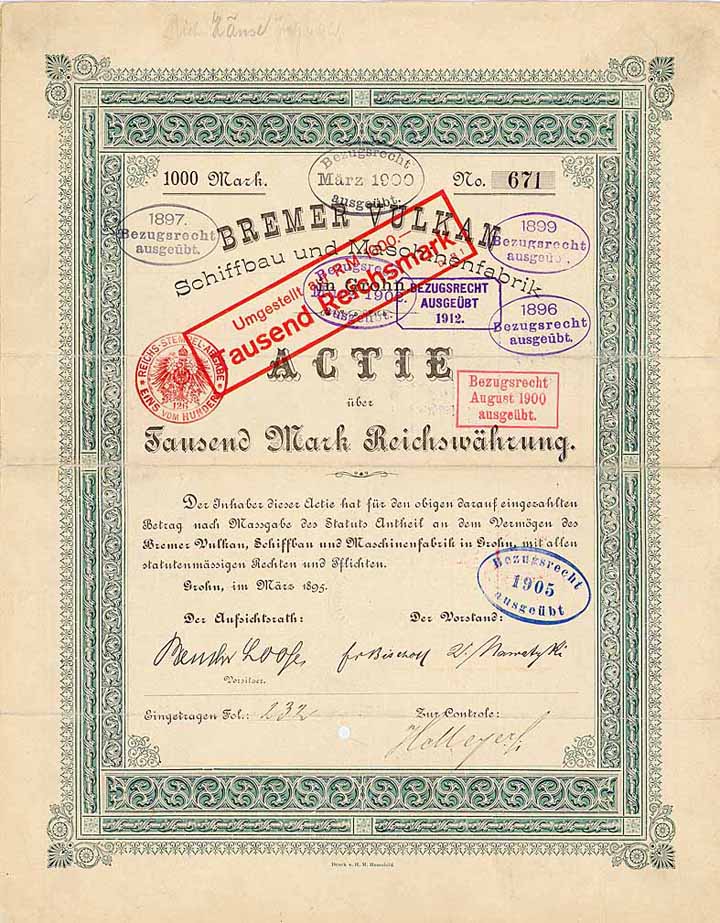 1000 Mark.
Bezugsrecht
März 1900
ausgeübt.
No. 671
1897.
Bezugsrecht
ausgeübt.
BREMER VULKAN
1899
Bezugsrecht
ausgeübt.
Schiffbau und Maschinenfabrik
in Grohn.
Umgestellt auf R.M. 1000.
Tausend Reichsmark
Bezugsrecht
ausgeübt.
BEZUGSRECHT
AUSGEÜBT
1912.
1896
Bezugsrecht
ausgeübt.
REICHS-STEMPEL-ABGABE
EINS VOM HUNDERT
126
ACTIE
über
Bezugsrecht
August 1900
ausgeübt.
Tausend Mark Reichswährung.
Der Inhaber dieser Actie hat für den obigen darauf eingezahlten
Betrag nach Massgabe des Statuts Antheil an dem Vermögen des
Bremer Vulkan, Schiffbau und Maschinenfabrik in Grohn, mit allen
statutenmässigen Rechten und Pflichten.
Grohn, im März 1895.
Bezugsrecht
1905
ausgeübt
Der Aufsichtsrath:
Der Vorstand:
Vorsitzer.
Eingetragen Fol.: 232
Zur Controle:
Druck v. H. M. Hauschild.